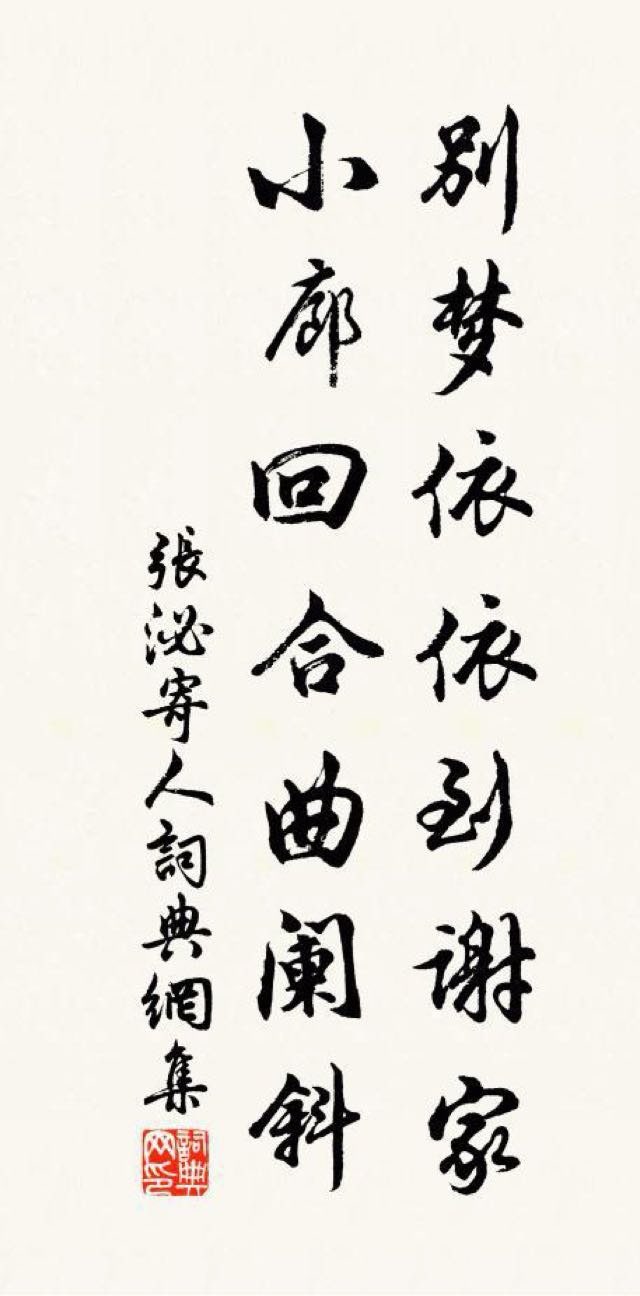 别梦依依到谢家
小廊回合曲阑斜
張泌寄人詞典網集
詞典网印